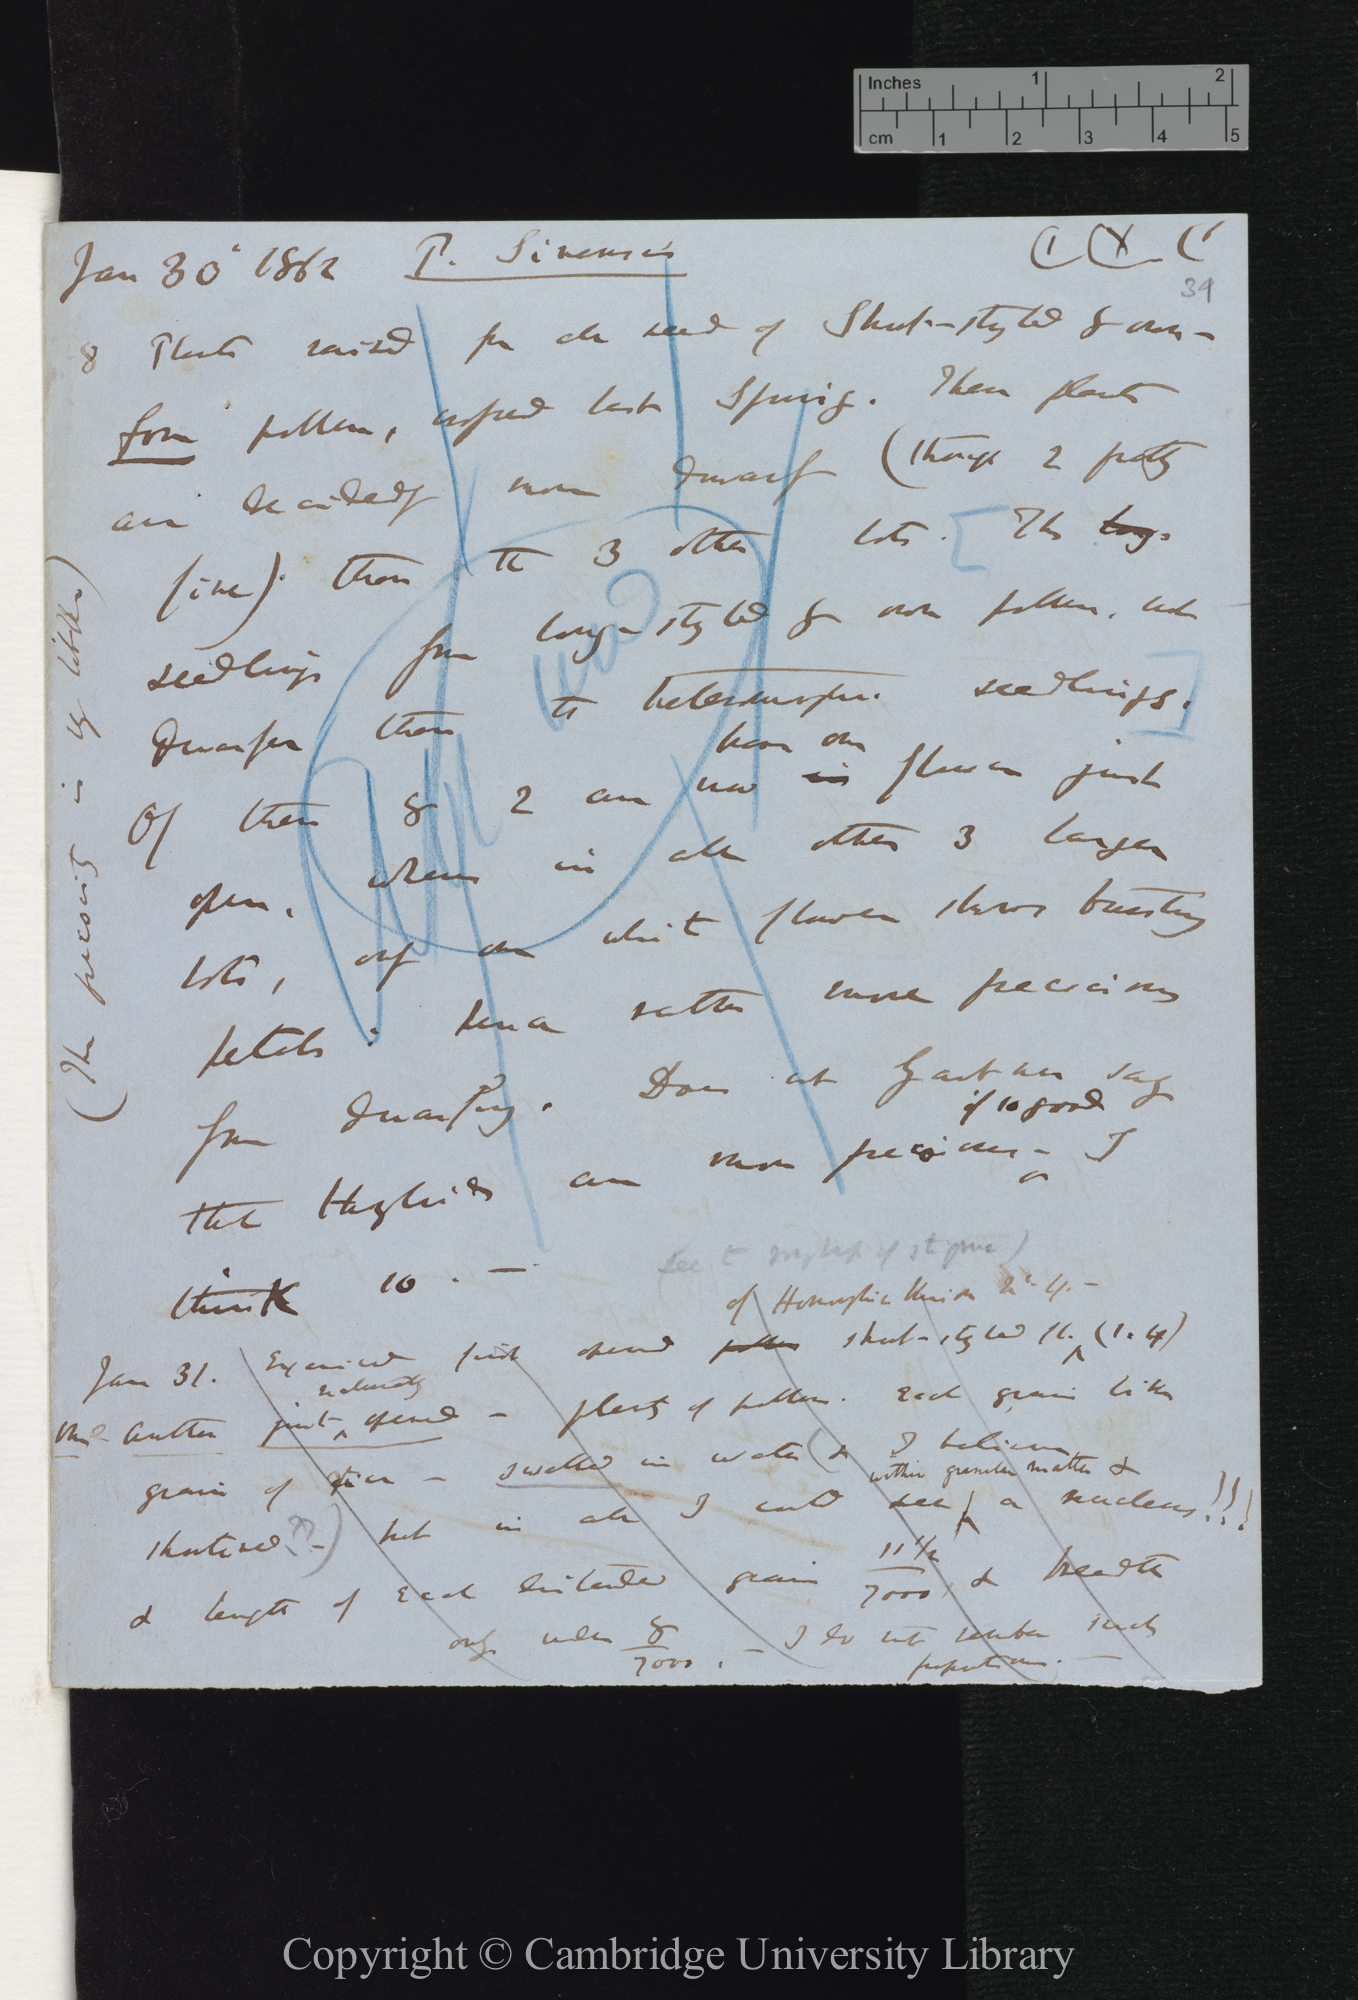 Inches 1 2
cm 1 2 3 4 5
Jan 30' 1862 P. Sinensis
39
8 Plants raised fr all seed of Short-styled & own-
form pollen, crossed last Spring. These plants
are decidedly more dwarf (though 2 pretty
fine) than the 3 other lots. [The long-
seedlings from long-styled & own pollen, not
dwarfer than the heteromorphic seedlings.]
used
have one
Of these 8 2 are now in flower just
open, whereas in all other 3 larger
lots, only one white flower shows bursting
petals: hence rather more precocious
from dwarfing. Does not Gartner say
if so good
that Hybrids are more precocious – I
think so. —
(The precocity is very little)
see
of Homomorphic Union No. 4. –
Jan 31. Examined just opened pollen short-styled fl. (1. 4)
naturally
one anther just opened – plenty of pollen. Each grain like
grain of rice – swelled in water (& I believe
within granular matter &
shortened??) but in all I could see a nucleus!!!
& length of each distended grain 11 1/2/7000, & breadth
only under 8/7000. — I do not remember such
proportions. —
Copyright © Cambridge University Library